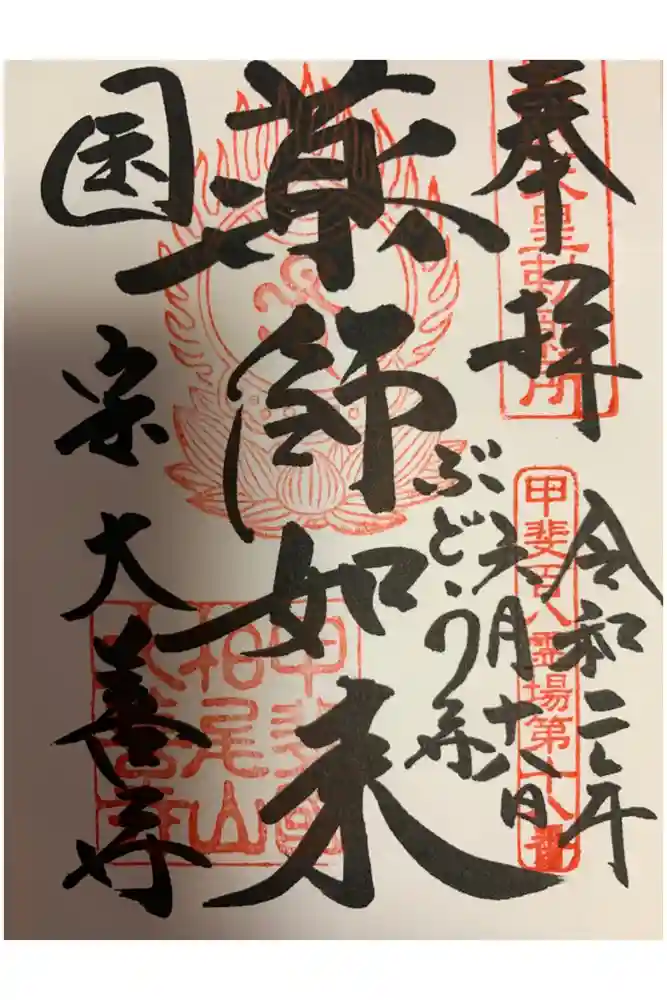 奉拝
天皇勅願所
令和二年
六月十八日
甲斐百八霊場第十八番
ぶどう寺
薬師如来
甲斐國
柏尾山
大善寺
国宝大善寺